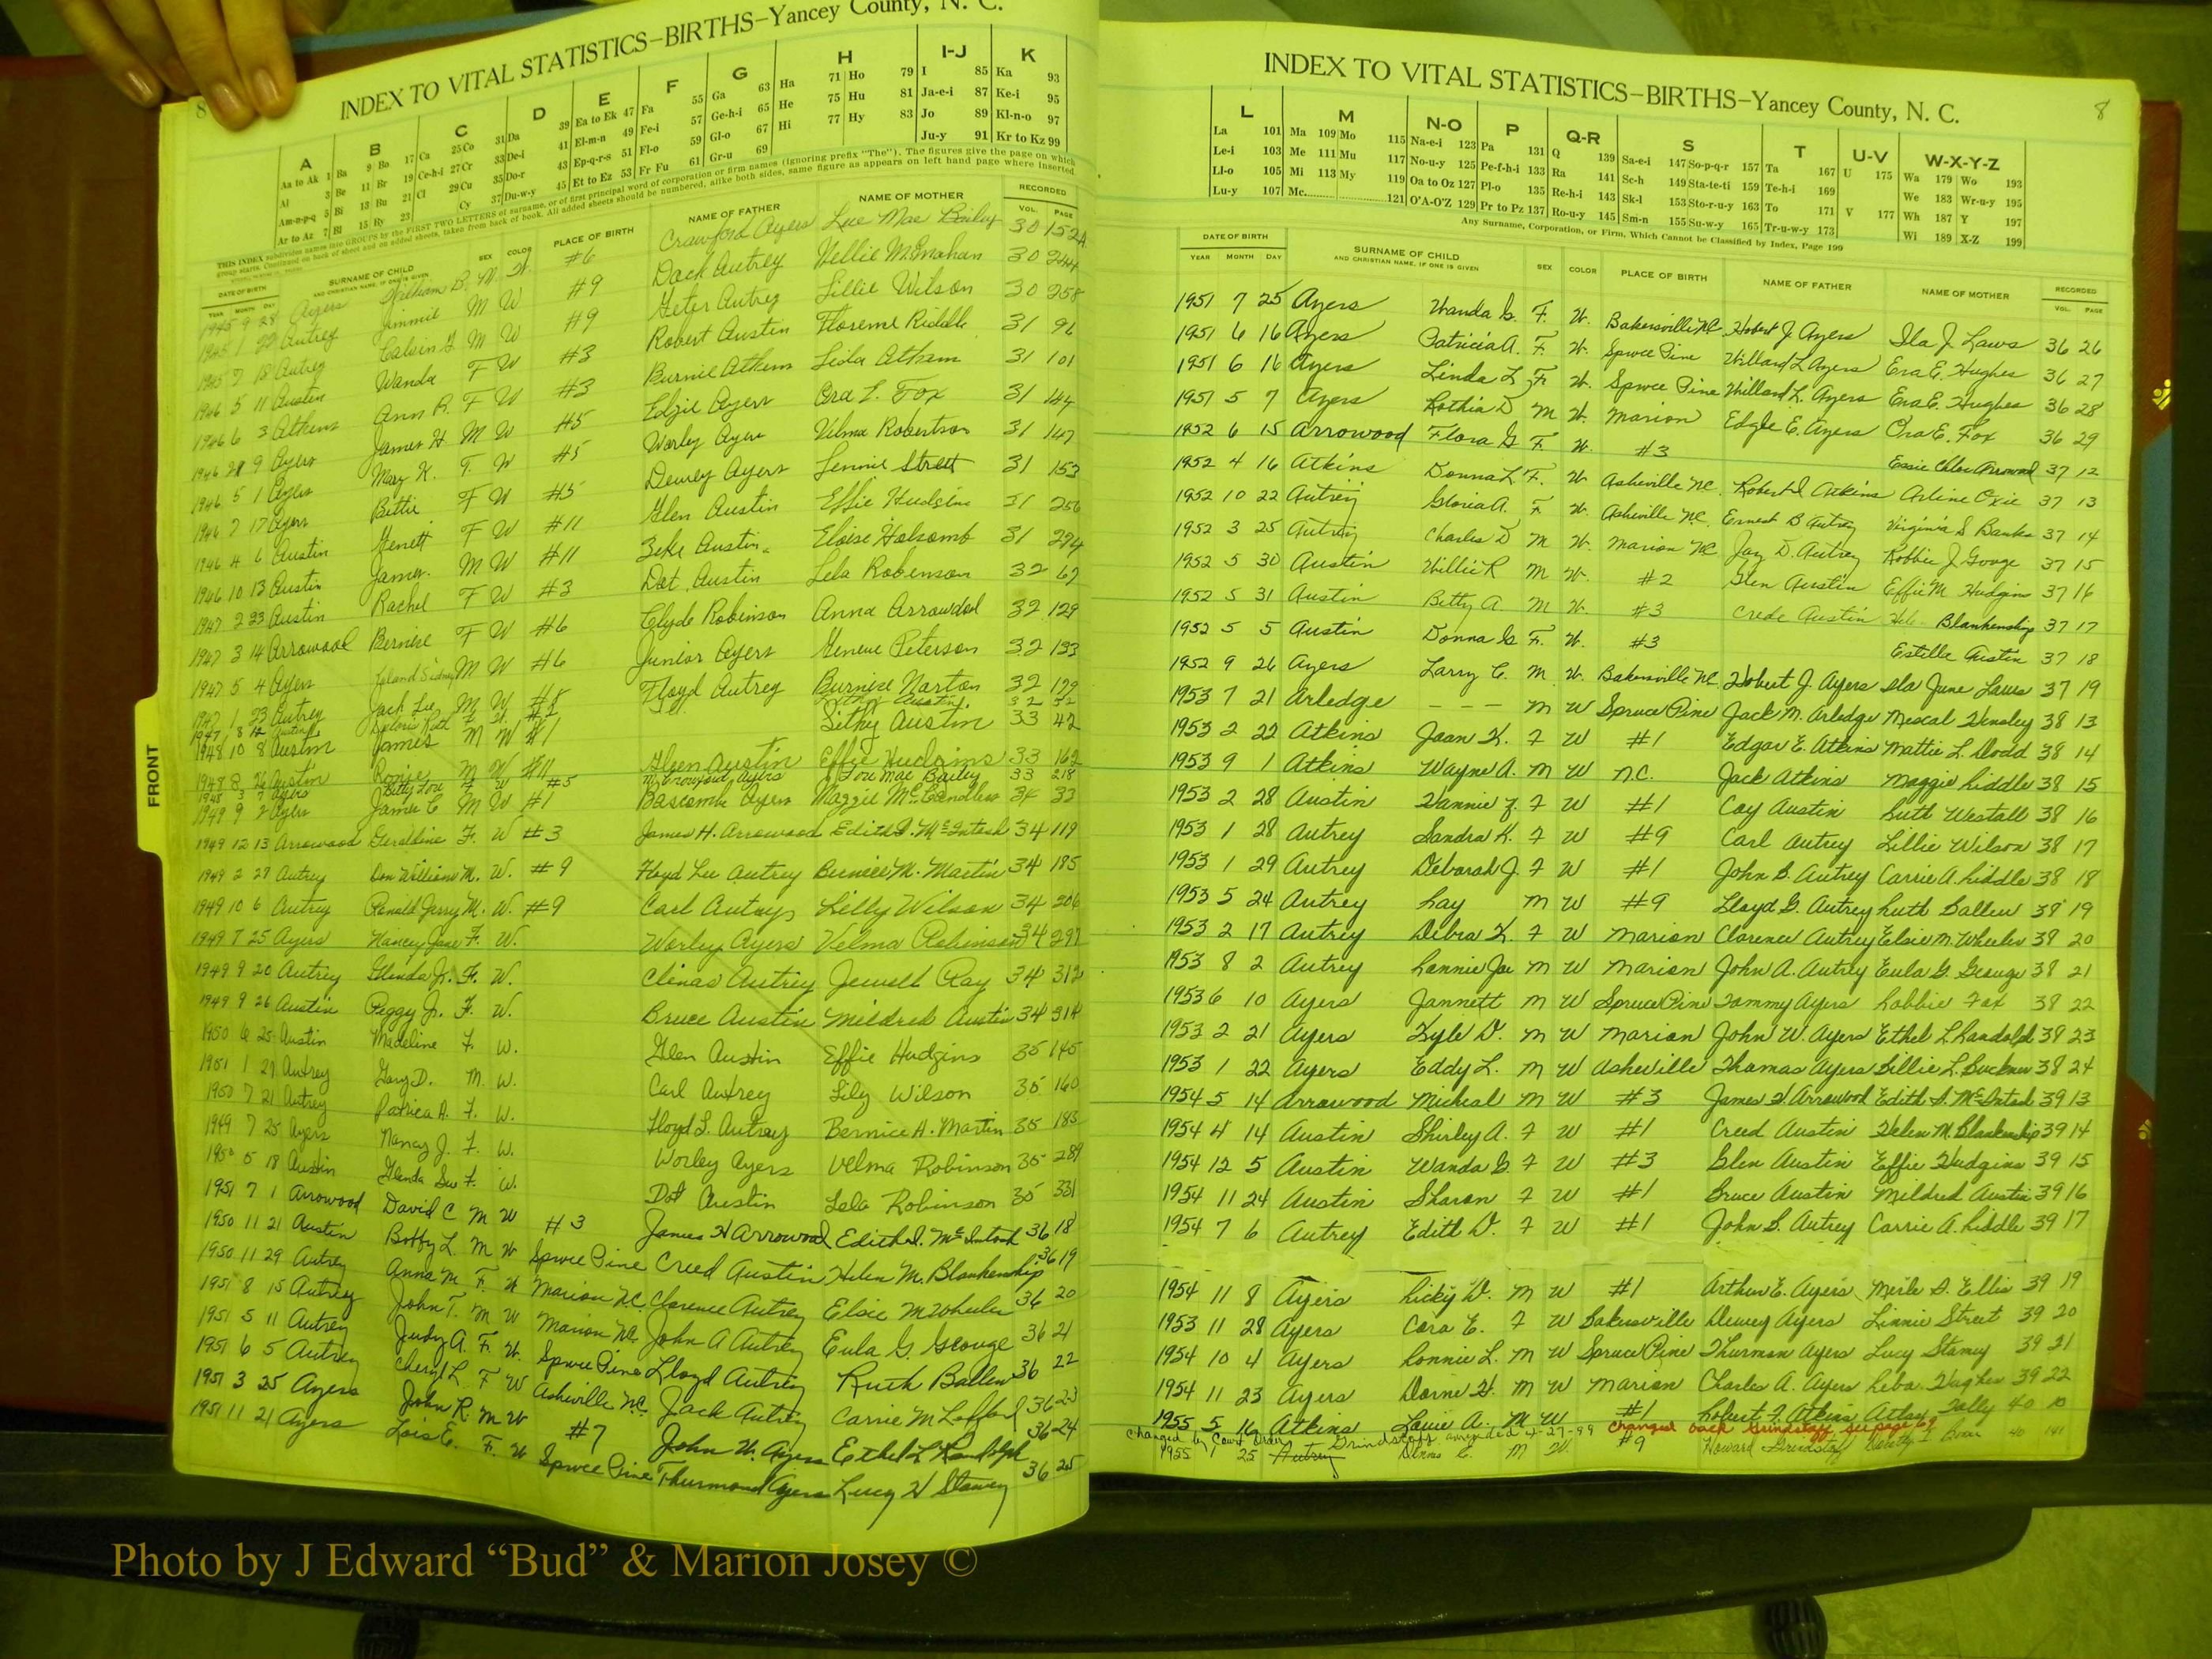 8
INDEX TO VITAL STATISTICS–BIRTHS–Yancey County, N. C.
A B C D E F G H I-J K
Aa to Ak 1 Ba 9 Bo 17 Ca 25 Co 31 Da 39 Ea to Ek 47 Fa 55 Ga 63 Ha 71 Ho 79 I 85 Ka 93
Al 3 Be 11 Br 19 Ce-h-i 27 Cr 33 De-i 41 El-m-n 49 Fe-i 57 Ge-h-i 65 He 75 Hu 81 Ja-e-i 87 Ke-i 95
Am-n-p-q 5 Bi 13 Bu 21 Cl 29 Cu 35 Do-r 43 Ep-q-r-s 51 Fl-o 59 Gl-o 67 Hi 77 Hy 83 Jo 89 Kl-n-o 97
Ar to Az 7 Bl 15 By 23 Cy 37 Du-w-y 45 Et to Ez 53 Fr Fu 61 Gr-u 69 Ju-y 91 Kr to Kz 99
THIS INDEX subdivides names into GROUPS by the FIRST TWO LETTERS of surname, or of first principal word of corporation or firm names (ignoring prefix "The"). The figures give the page on which
group starts. Continued on back of sheet and on added sheets, taken from back of book. All added sheets should be numbered, alike both sides, same figure as appears on left hand page where inserted.
DATE OF BIRTH SURNAME OF CHILD SEX COLOR PLACE OF BIRTH NAME OF FATHER NAME OF MOTHER RECORDED
YEAR MONTH DAY AND CHRISTIAN NAME, IF ONE IS GIVEN VOL. PAGE
1945 9 28 Ayers William B. M. W. #6 Crawford Ayers Lue Mae Bailey 30 152A
1945 1 22 Autrey Jimmie M W #9 Dock Autrey Nellie McMahan 30 244
1945 7 18 Autrey Calvin G M W #9 Geter Autrey Lillie Wilson 30 258
1946 5 11 Austin Wanda F W #3 Robert Austin Florene Riddle 31 96
1946 6 3 Atkins Ann R. F W #3 Burnie Atkins 31 101
1946 9 Ayers James H M W #5 Edzie Ayers Ora L. Fox 31 144
1946 5 1 Ayers Mary K. F. W #5 Worley Ayers Vilma Robertson 31 147
1946 7 17 Ayers Bittie F W #5 Dewey Ayers Lennie Street 31 153
1946 4 6 Austin F W #11 Glen Austin Effie Hudgins 31 256
1946 10 13 Austin James M W #11 Zeke Austin Eloise Holcomb 31 274
1947 2 23 Austin Rachel F W #3 Dot Austin Lela Robinson 32 67
1947 3 14 Arrowood Bernice F W #6 Clyde Robinson Anna Arrowood 32 129
1947 5 4 Ayers M W #6 Junior Ayers Geneve Peterson 32 133
1947 1 23 Autrey Jack Lee M W #8 Floyd Autrey Burnice Norton 32 179
1947 8 12 Austin Ruth F
1948 10 8 Austin James M W #1 Lithy Austin 33 42
1948 8 26 Austin M W #11 Glen Austin Effie Hudgins 33 162
1948 3 7 Ayers Betty Lou F W #5 W. Crawford Ayers Lou Mae Bailey 33 218
1949 9 2 Ayers James C M W #1 Bascombe Ayers Maggie McCandless 34 33
1949 12 13 Arrowood Geraldine F. W #3 James H. Arrowood Edith I. McIntosh 34 119
1949 2 27 Autrey Don William M. W. #9 Floyd Lee Autrey Bernice M. Martin 34 185
1949 10 6 Autrey Ronald Jerry M. W. #9 Carl Autreys Lilly Wilson 34 206
1949 7 25 Ayers Nancy Jane F. W. Worley Ayers Velma Robinson 34 297
1949 9 20 Autrey Glenda Jr. F. W. Clinas Autrey Jewell Ray 34 312
1949 9 26 Austin Peggy Jr. F. W. Bruce Austin Mildred Austin 34 314
1950 6 25 Austin Madeline F. W. Glen Austin Effie Hudgins 35 145
1951 1 27 Autrey Gary D. M. W. Carl Autrey Lily Wilson 35 160
1950 7 21 Autrey Patrica A. F. W. Floyd L. Autrey Bernice H. Martin 35 183
1949 7 25 Ayers Nancy J. F. W. Worley Ayers Velma Robinson 35 289
1950 5 18 Austin Glenda Sue F. W. Dot Austin Lela Robinson 35 331
1951 7 1 Arrowood David C M W #3 James H Arrowood Edith I. McIntosh 36 18
1950 11 21 Austin Bobby L. M W Spruce Pine Creed Austin Helen M. Blankenship 36 19
1950 11 29 Autrey Anna M F. W Marion N.C. Clarence Autrey Elsie M Wheeler 36 20
1951 8 15 Autrey John T. M W Marion N.C. John A Autrey Eula G. Gouge 36 21
1951 5 11 Autrey Judy A. F. W. Spruce Pine Lloyd Autrey Ruth Ballew 36 22
1951 6 5 Autrey Cheryl L F W Asheville N.C. Jack Autrey Carrie M Lofford 36 23
1951 3 25 Ayers John R. M W #7 John W. Ayers Ethel L Randolph 36 24
1951 11 21 Ayers Lois E. F. W Spruce Pine Thurmond Ayers Lucy H Stamey 36 25
FRONT
INDEX TO VITAL STATISTICS–BIRTHS–Yancey County, N. C.
8
L M N-O P Q-R S T U-V W-X-Y-Z
La 101 Ma 109 Mo 115 Na-e-i 123 Pa 131 Q 139 Sa-e-i 147 So-p-q-r 157 Ta 167 U 175 Wa 179 Wo 193
Le-i 103 Me 111 Mu 117 No-u-y 125 Pe-f-h-i 133 Ra 141 Sc-h 149 Sta-te-ti 159 Te-h-i 169 We 183 Wr-u-y 195
Ll-o 105 Mi 113 My 119 Oa to Oz 127 Pl-o 135 Re-h-i 143 Sk-l 153 Sto-r-u-y 163 To 171 V 177 Wh 187 Y 197
Lu-y 107 Mc 121 O'A-O'Z 129 Pr to Pz 137 Ro-u-y 145 Sm-n 155 Su-w-y 165 Tr-u-w-y 173 Wi 189 X-Z 199
Any Surname, Corporation, or Firm, Which Cannot be Classified by Index, Page 199
DATE OF BIRTH SURNAME OF CHILD SEX COLOR PLACE OF BIRTH NAME OF FATHER NAME OF MOTHER RECORDED
YEAR MONTH DAY AND CHRISTIAN NAME, IF ONE IS GIVEN VOL. PAGE
1951 7 25 Ayers Wanda G. F. W. Bakersville N.C. Hobert J Ayers Ila J Laws 36 26
1951 6 16 Ayers Patricia A. F. W. Spruce Pine Willard L Ayers Era E. Hughes 36 27
1951 6 16 Ayers Linda L F. W. Spruce Pine Willard L. Ayers Era E. Hughes 36 28
1951 5 7 Ayers Kothia D M W. Marion Edgle E. Ayers Ora E. Fox 36 29
1952 6 15 Arrowood Flora G F. W. #3 Essie Chloe Arrowood 37 12
1952 4 16 Atkins Donna L F. W Asheville N.C. Robert I Atkins Arline Oxie 37 13
1952 10 22 Autrey Gloria A. F W. Asheville N.C. Ernest B Autrey Virginia S Banks 37 14
1952 3 25 Autrey Charles D M W. Marion N.C. Jay D. Autrey Robbie J Gouge 37 15
1952 5 30 Austin Willie R M W. #2 Glen Austin Effie M Hudgins 37 16
1952 5 31 Austin Betty A. M W. #3 Crede Austin Blankenship 37 17
1952 5 5 Austin Donna G F. W. #3 Estelle Austin 37 18
1952 9 26 Ayers Larry C. M. W. Bakersville N.C. Hobert J. Ayers Ila June Laws 37 19
1953 7 21 Arledge – – – M W Spruce Pine Jack M. Arledge Mescal Hensley 38 13
1953 2 22 Atkins Joan K. F W #1 Edgar E. Atkins Mattie L. Dodd 38 14
1953 9 1 Atkins Wayne A. M W N.C. Jack Atkins Maggie Riddle 38 15
1953 2 28 Austin Nannie Z. F W #1 Coy Austin Ruth Westall 38 16
1953 1 28 Autrey Sandra K. F W #9 Carl Autrey Lillie Wilson 38 17
1953 1 29 Autrey Deborah J. F W #1 John B. Autrey Carrie A. Riddle 38 18
1953 5 24 Autrey Ray M W #9 Lloyd G. Autrey Ruth Ballew 38 19
1953 2 17 Autrey Debra K. F W Marion Clarence Autrey Elsie M. Wheeler 38 20
1953 8 2 Autrey Ronnie Joe M W Marion John A. Autrey Eula G. Gouge 38 21
1953 6 10 Ayers Jannett M W Spruce Pine Tommy Ayers Robbie Fox 38 22
1953 2 21 Ayers Kyle D. M W Marion John W. Ayers Ethel L Randolph 38 23
1953 1 22 Ayers Eddy L. M W Asheville Thomas Ayers Billie L. Buckner 38 24
1954 5 14 Arrowood Micheal M W #3 James H. Arrowood Edith I. McIntosh 39 13
1954 4 14 Austin Shirley A. F W #1 Creed Austin Helen M. Blankenship 39 14
1954 12 5 Austin Wanda G. F W #3 Glen Austin Effie Hudgins 39 15
1954 11 24 Austin Sharon F W #1 Bruce Austin Mildred Austin 39 16
1954 7 6 Autrey Edith D. F W #1 John B. Autrey Carrie A. Riddle 39 17
1954 11 8 Ayers Ricky D. M W #1 Arthur E. Ayers Merle D. Ellis 39 19
1953 11 28 Ayers Cora E. F W Bakersville Dewey Ayers Linnie Street 39 20
1954 10 4 Ayers Ronnie L. M W Spruce Pine Thurman Ayers Lucy Stamey 39 21
1954 11 23 Ayers Dorne H. M W Marion Charles A. Ayers Reba Hughes 39 22
1955 5 16 Atkins Louie A. M W #1 Robert F. Atkins Atlas Jolly 40 10
Changed by Court Order Grindstaff amended 4-27-99 Changed back Grindstaff see page 69
1955 1 25 Autrey Dennis C. M W. #9 Howard Grindstaff 40 141
Photo by J Edward “Bud” & Marion Josey ©